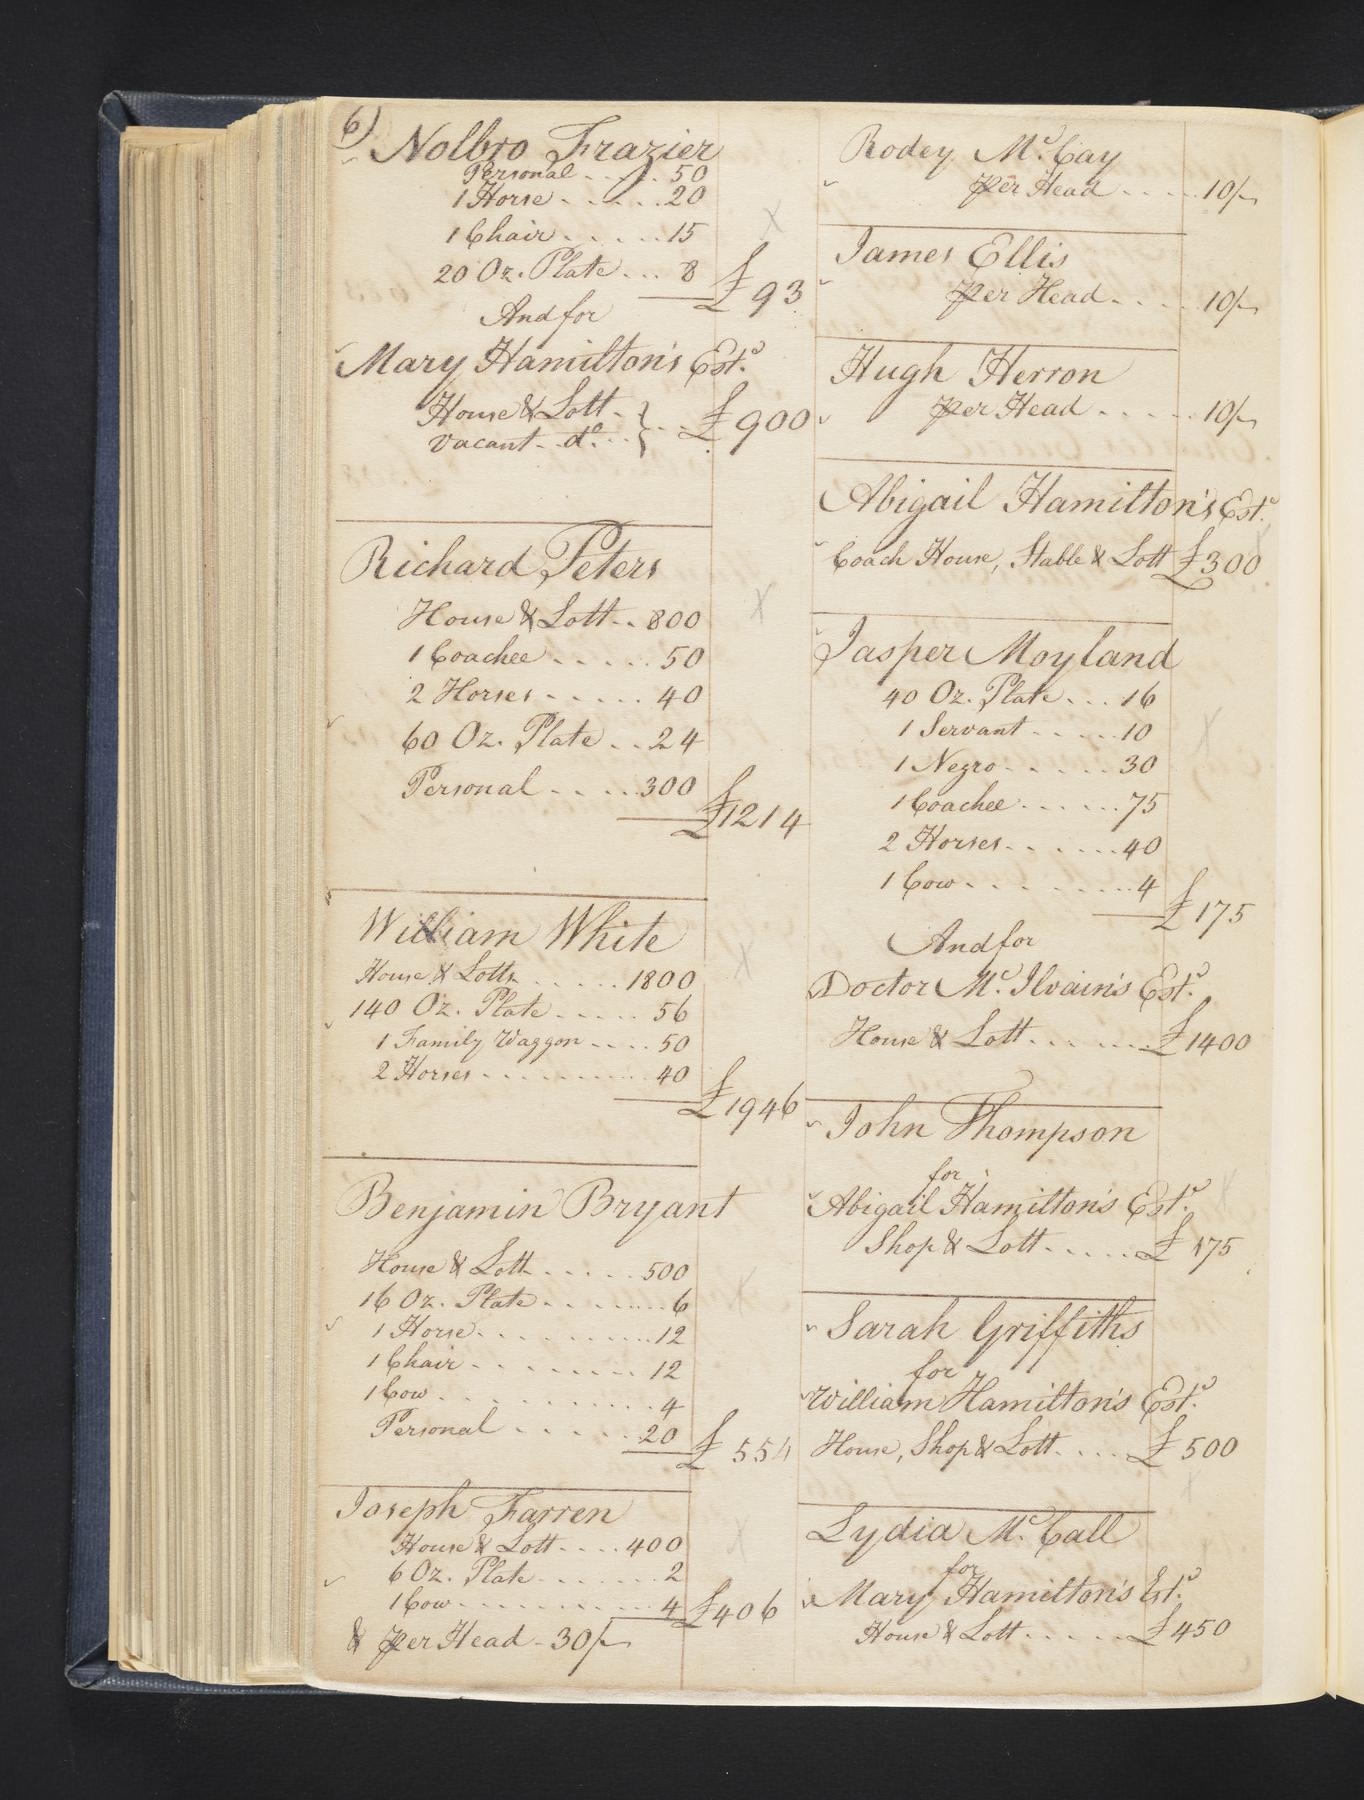 6)
Nolbro Frazier
Personal . . . . 50
1 Horse . . . . . 20
1 Chair . . . . . 15
20 Oz. Plate . . . 8
£93
And for
Mary Hamilton's Estᵉ.
House & Lott -
vacant - dᵒ. . . } . . . £900
Richard Peters
House & Lott . . 800
1 Coachee . . . . . 50
2 Horses . . . . . 40
60 Oz. Plate . . 24
Personal . . . . 300
£1214
William White
House & Lotts . . . . . . 1800
140 Oz. Plate . . . . . 56
1 Family Waggon . . . . 50
2 Horses . . . . . . . . . . 40
£1946
Benjamin Bryant
House & Lott . . . . . 500
16 Oz. Plate . . . . . . . . 6
1 Horse . . . . . . . . . . . 12
1 Chair . . . . . . . . 12
1 Cow . . . . . . . . . . . 4
Personal . . . . . . 20
£554
Joseph Farren
House & Lott . . . . 400
6 Oz. Plate . . . . . . . 2
1 Cow . . . . . . . . . . . 4
£406
& per Head - 30/-
Rodey Mᶜ. Cay
per Head . . . . . 10/-
James Ellis
per Head . . . . 10/-
Hugh Herron
per Head . . . . . 10/-
Abigail Hamilton's Estᵉ.
Coach House, Stable & Lott £300
Jasper Moyland
40 Oz. Plate . . . 16
1 Servant . . . . . 10
1 Negro . . . . . . 30
1 Coachee . . . . . . 75
2 Horses . . . . . . 40
1 Cow . . . . . . . . . 4
£175
And for
Doctor Mᶜ. Ilvain's Estᵉ.
House & Lott . . . . . . . £1400
John Thompson
for
Abigail Hamilton's Estᵉ.
Shop & Lott . . . . . £175
Sarah Griffiths
for
William Hamilton's Estᵉ.
House, Shop & Lott . . . . £500
Lydia Mᶜ. Call
for
Mary Hamilton's Estᵉ.
House & Lott . . . . . £450